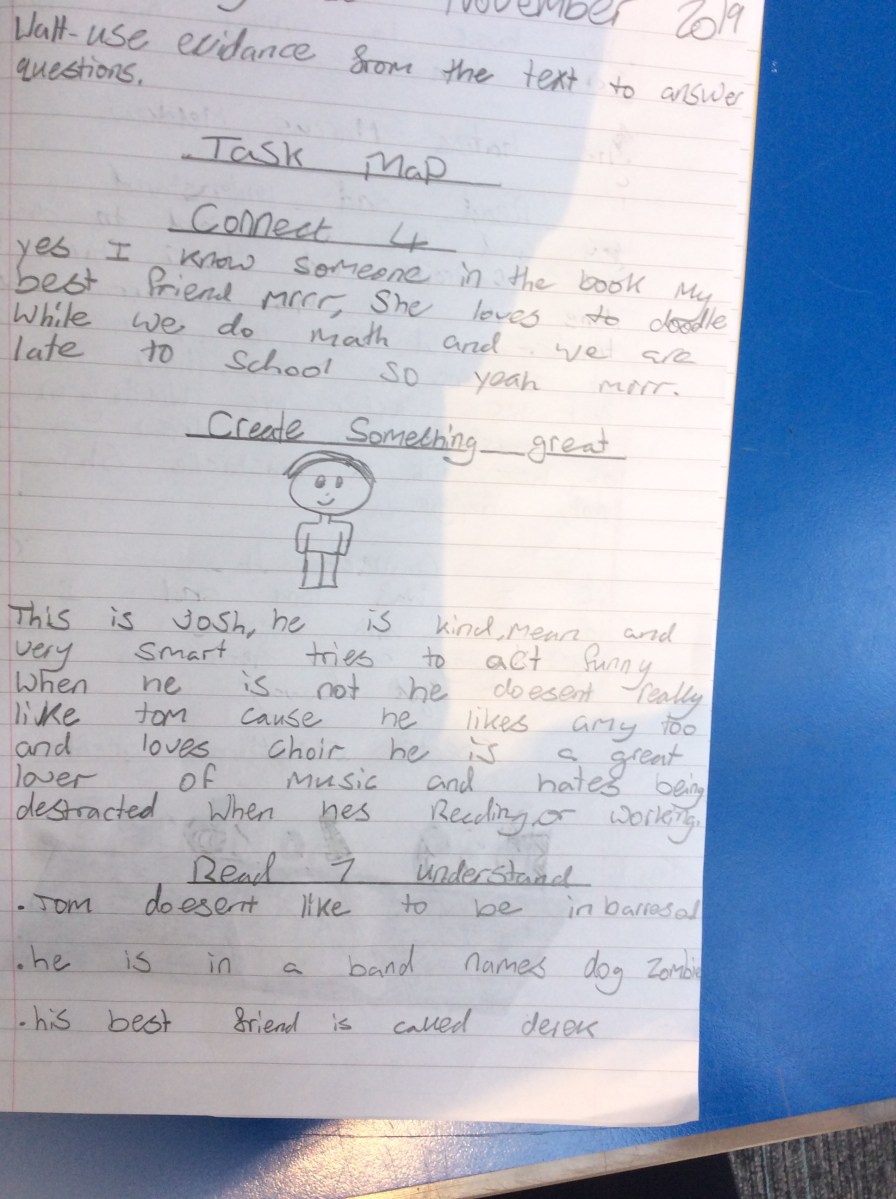 November 2019
Walt-use evidance from the text to answer
questions.
Task Map
Connect 4
yes I know someone in the book My
best friend mrrr, She loves to doodle
While we do math and we are
late to School so yeah mrrr.
Create Something great
This is Josh, he is kind, mean and
very smart tries to act funny
When he is not he doesent really
like tom cause he likes amy too
and loves choir he is a great
lover of music and hates being
destracted when hes Reeding, or working.
Read 7 understand
. Tom doesent like to be inbarresd
. he is in a band names dog Zombie
. his best friend is called derek